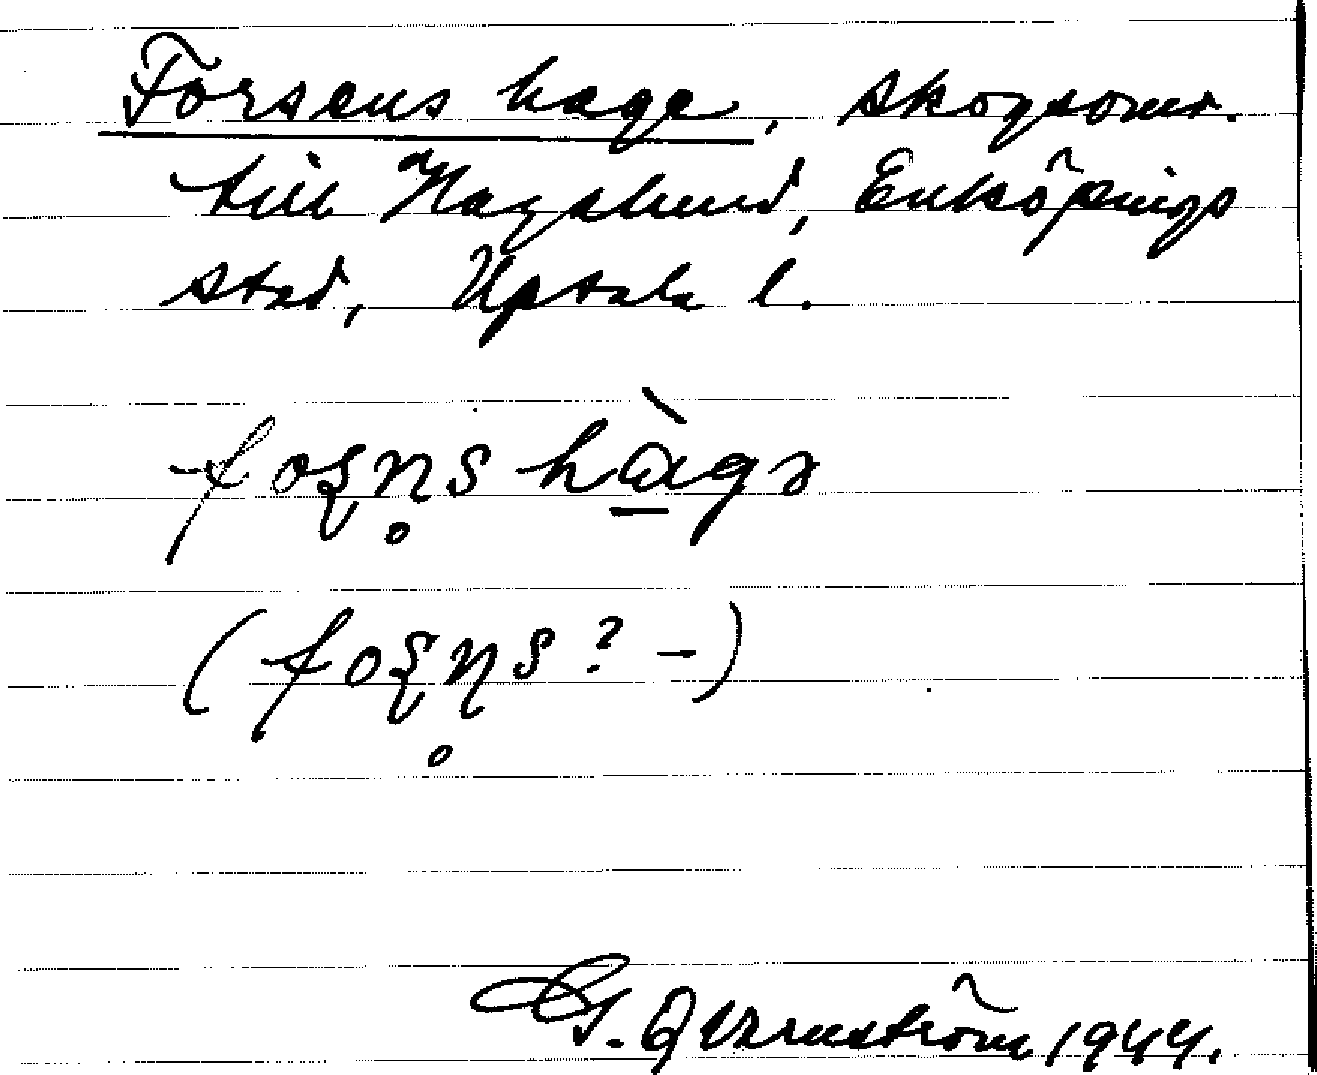 Forsens hage, skogsomr.
till Hagalund, Enköpings
stad, Uptala l.
foʂn̥s hàgə
(foʂɳ̥s? –)
G. Qvarnström 1944.